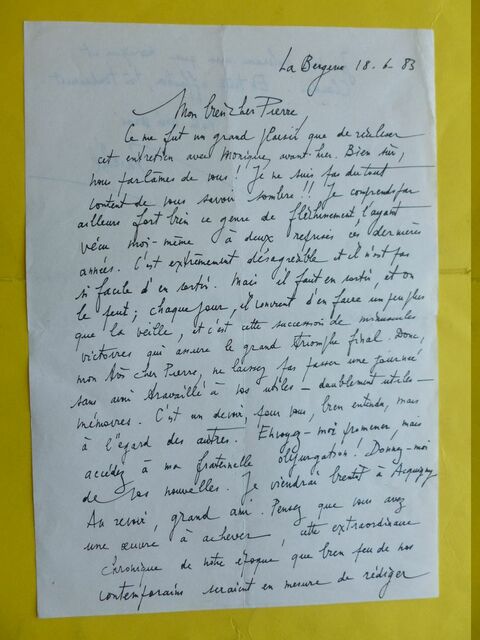 La Bergerie 18-6-83
Mon bien cher Pierre,
Ce me fut un grand plaisir que de réaliser
cet entretien avec Monique, avant-hier. Bien sûr,
nous parlâmes de vous ! Je ne suis pas du tout
content de vous savoir sombre !! Je comprends par
ailleurs fort bien ce genre de fléchissement, l'ayant
vécu moi-même à deux reprises ces dernières
années. C'est extrêmement désagréable et il n'est pas
si facile d'en sortir. Mais il faut en sortir, et on
le peut ; chaque jour, il convient d'en faire un peu plus
que la veille, et c'est cette succession de minuscules
victoires qui assure le grand triomphe final. Donc,
mon très cher Pierre, ne laissez pas passer une journée
sans avoir travaillé à vos utiles — doublement utiles —
mémoires. C'est un devoir, pour vous, bien entendu, mais
à l'égard des autres. Envoyez-moi promener, mais
accédez à ma fraternelle objurgation ! Donnez-moi
de vos nouvelles. Je viendrai bientôt à Acquigny
Au revoir, grand ami. Pensez que vous avez
une œuvre à achever, cette extraordinaire
chronique de notre époque que bien peu de nos
contemporains seraient en mesure de rédiger